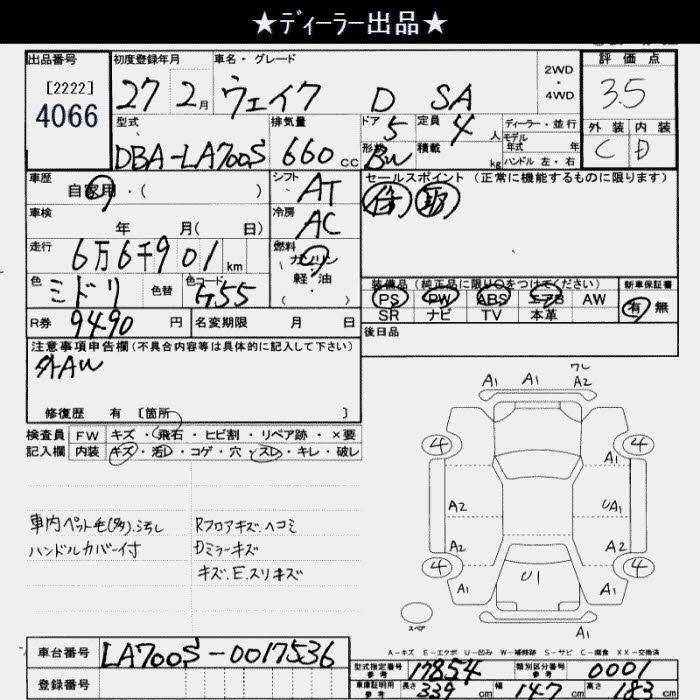 ★ディーラー出品★
出品番号 初度登録年月 車名・グレード 2WD・4WD 評価点
[2222] 4066 27年 2月 ウェイク D SA 3.5
型式 排気量 ドア 5 定員 4人 ディーラー・並行 外装 内装
DBA-LA700S 660cc 形状 BW 積載 kg モデル年式 年 C D
ハンドル 左・右
車歴 自家用・( ) シフト AT セールスポイント (正常に機能するものに限ります)
車検 年 月( 日) 冷房 AC 保 取
走行 6万6千901km 燃料 ガソリン 軽・油 ・( )
色 ミドリ 色替 色コード G55 装備品(純正品に限り○をつけてください) 新車保証書
PS PW ABS エアB AW 有 無
R券 9490円 名変期限 月 日 SR ナビ TV 本革
注意事項申告欄(不具合内容等は具体的に記入して下さい) 後日品
外AW
修復歴 有 [箇所 ]
検査員 FW キズ・飛石・ヒビ割・リペア跡・×要
記入欄 内装 キズ・汚レ・コゲ・穴・スレ・キレ・破レ
A1 A1 A2
4 4
A1
A2 UA1
A2 A2
4 4
A1 U1 A1
A1
車内ペット毛(臭).汚し Rフロアキズ.ヘコミ
ハンドルカバー付 Dミラーキズ
キズ.E.スリキズ
スペア
A-キズ E-エクボ U-凹み W-補修跡 S-サビ C-腐食 XX-交換済
車台番号 LA700S-0017536
型式指定番号 参考 17854 類別区分番号 参考 0001
登録番号
車庫証明用 参考 長さ 339cm 幅 147cm 高さ 183cm